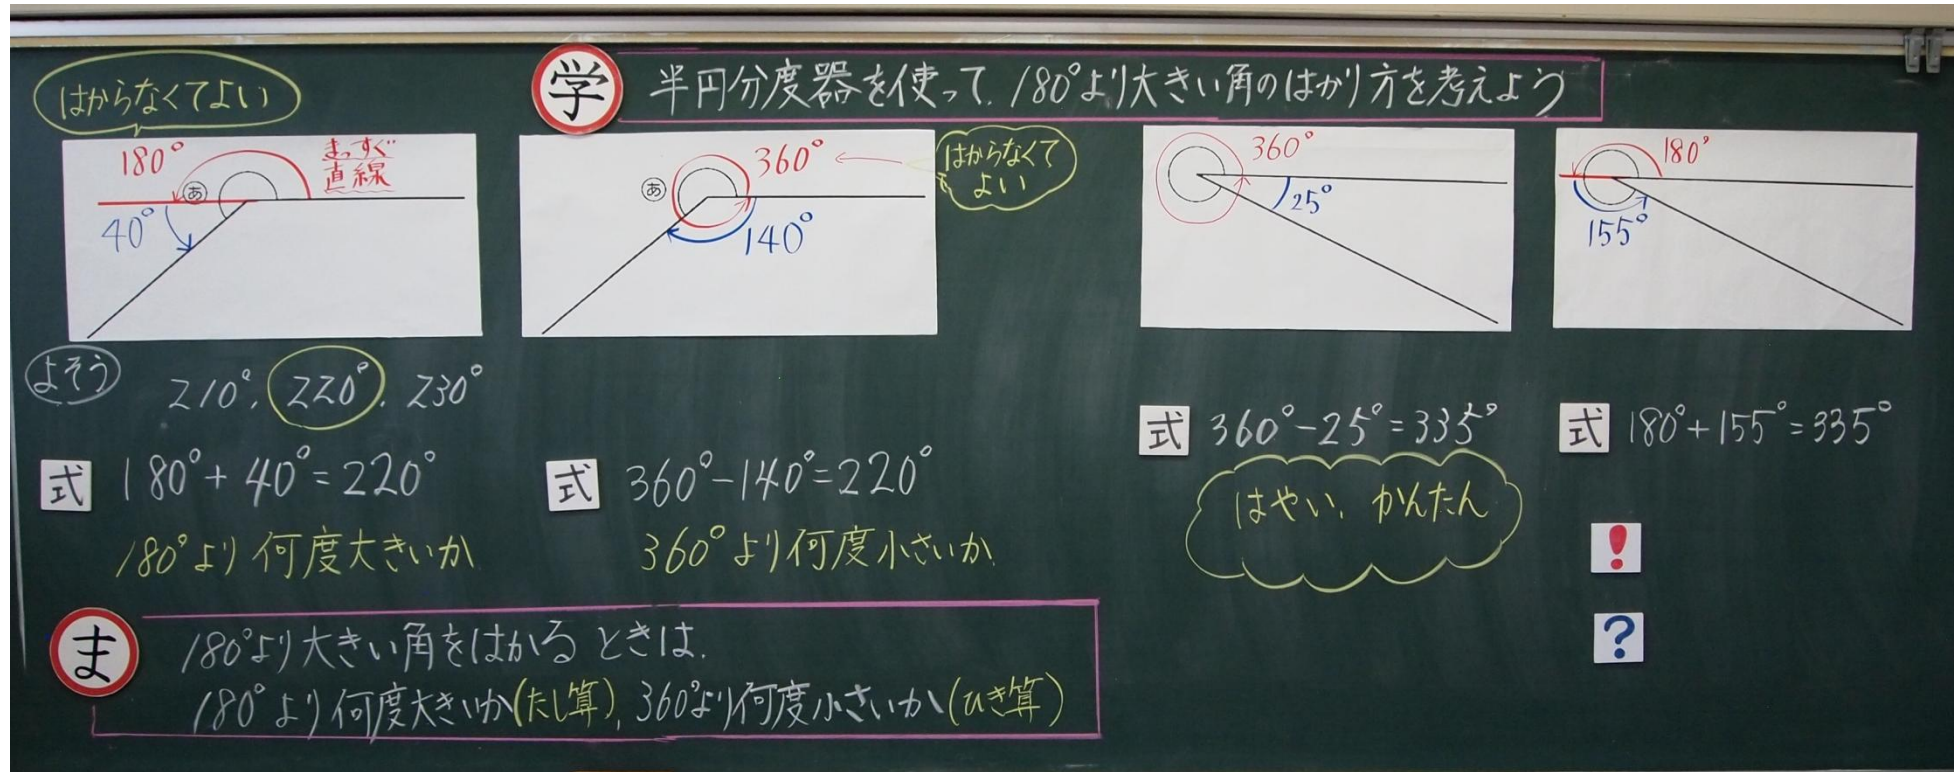 はからなくてよい
学 半円分度器を使って、180°より大きい角のはかり方を考えよう
180°
まっすぐ
直線
あ
40°
360°
あ
140°
はからなくて
よい
360°
25°
180°
155°
よそう
210°、220°、230°
式 180°+40°=220°
180°より何度大きいか
式 360°-140°=220°
360°より何度小さいか
式 360°-25°=335°
はやい、かんたん
式 180°+155°=335°
!
?
ま 180°より大きい角をはかるときは、
180°より何度大きいか(たし算)、360°より何度小さいか(ひき算)